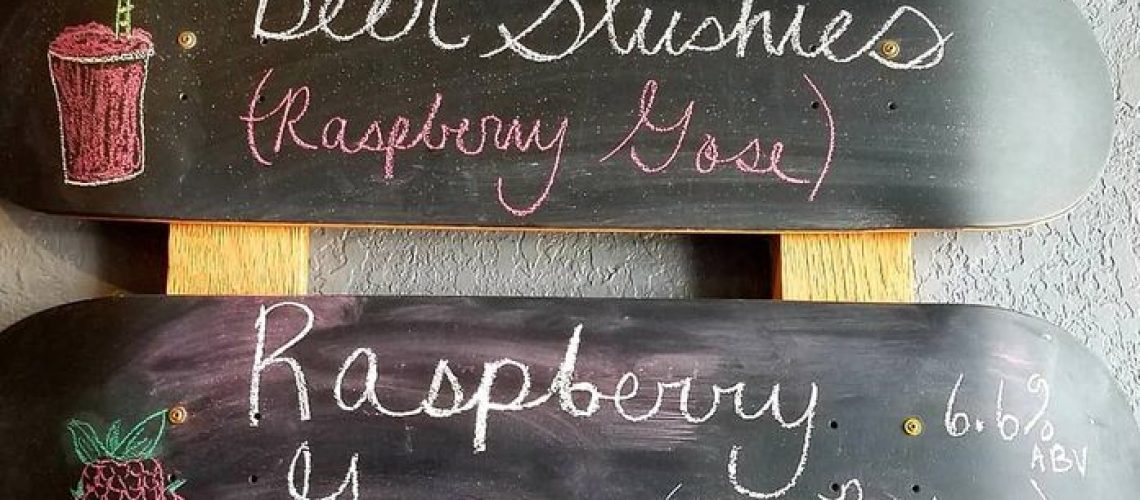 Beer Slushies
(Raspberry Gose)
Raspberry
6.6%
ABV